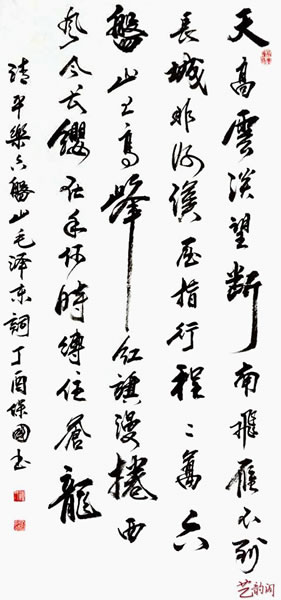 天高雲淡望斷南飛雁不到
長城非好漢屈指行程二萬六
盤山上高峯紅旗漫捲西
風今長纓在手何時縛住蒼龍
清平樂六盤山毛泽东詞丁酉國书
艺韵阁